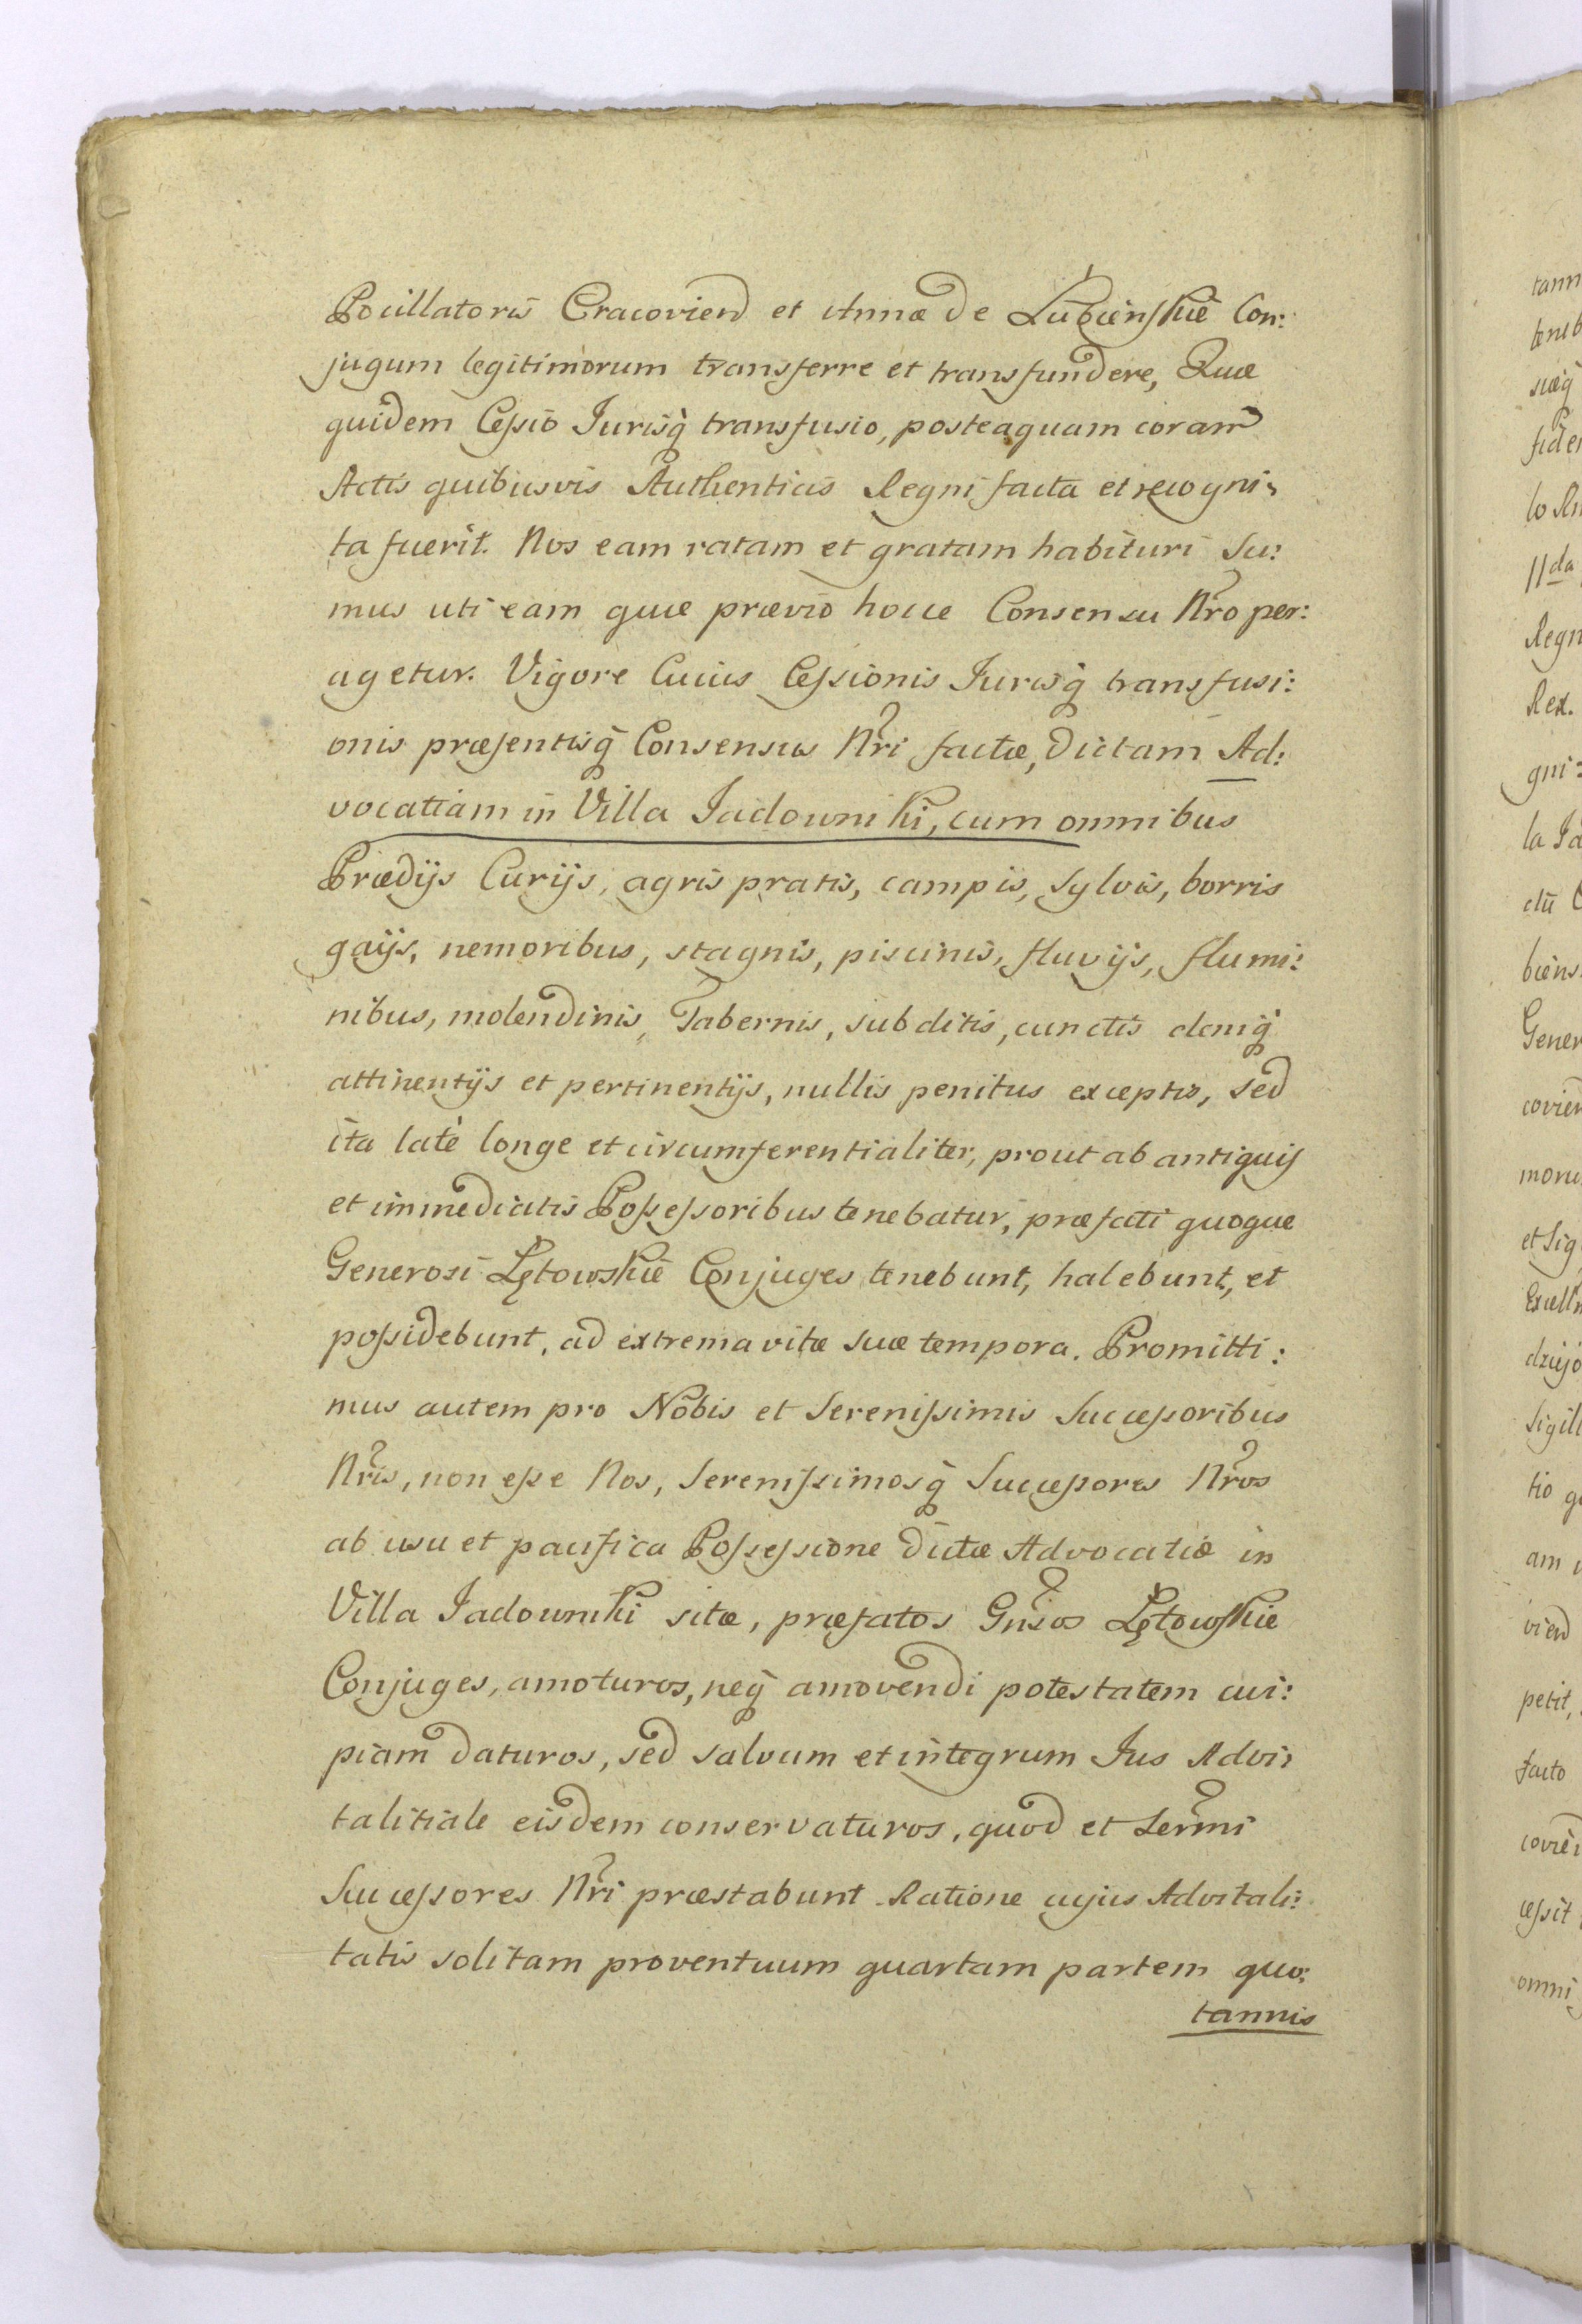 Pocillatoris Cracovien et Annæ de Łubienskie Con:
jugum legitimorum transferre et transfundere, Quæ
quidem Cessio Jurisq̀ transfusio, posteaquam coram
Actis quibusvis Authenticis Regni facta et recogni:
ta fuerit. Nos eam ratam et gratam habituri Su:
mus uti eam quæ prævio hocce Consensu Nro per:
agetur. Vigore Cuius Cessionis Jurisq̀ transfusi:
onis præsentisq̀ Consensus Nri factæ, dictam Ad:
vocatiam in Villa Jadowniki, cum omnibus
Prædijs Curijs, agris pratis, campis, sylvis, borris
gaijs, nemoribus, stagnis, piscinis, fluvijs, flumi:
nibus, molendinis, Tabernis, subditis, cunctis deniq̀
attinentijs et pertinentijs, nullis penitus exceptis, sed
ita latè longe et circumferentialiter, prout ab antiquis
et immediatis Possessoribus tenebatur, præfati quoque
Generosi Łętowskie Conjuges tenebunt, halebunt, et
possidebunt, ad extrema vitæ suæ tempora. Promitti:
mus autem pro Nobis et Serenissimis Successoribus
Nris, non esse Nos, Serenissimosq̀ Successores Nros
ab usu et pacifica Possessione dictæ Advocatiæ in
Villa Jadowniki sitæ, præfatos Gnsos Łętowskie
Conjuges, amoturos, neq̀ amovendi potestatem cui:
piam daturos, sed salvum et integrum Jus Advi:
talitiale eisdem conservaturos, quod et Sermi
Successores Nri præstabunt Ratione cujus Advitali:
tatis solitam proventuum quartam partem quo:
tannis